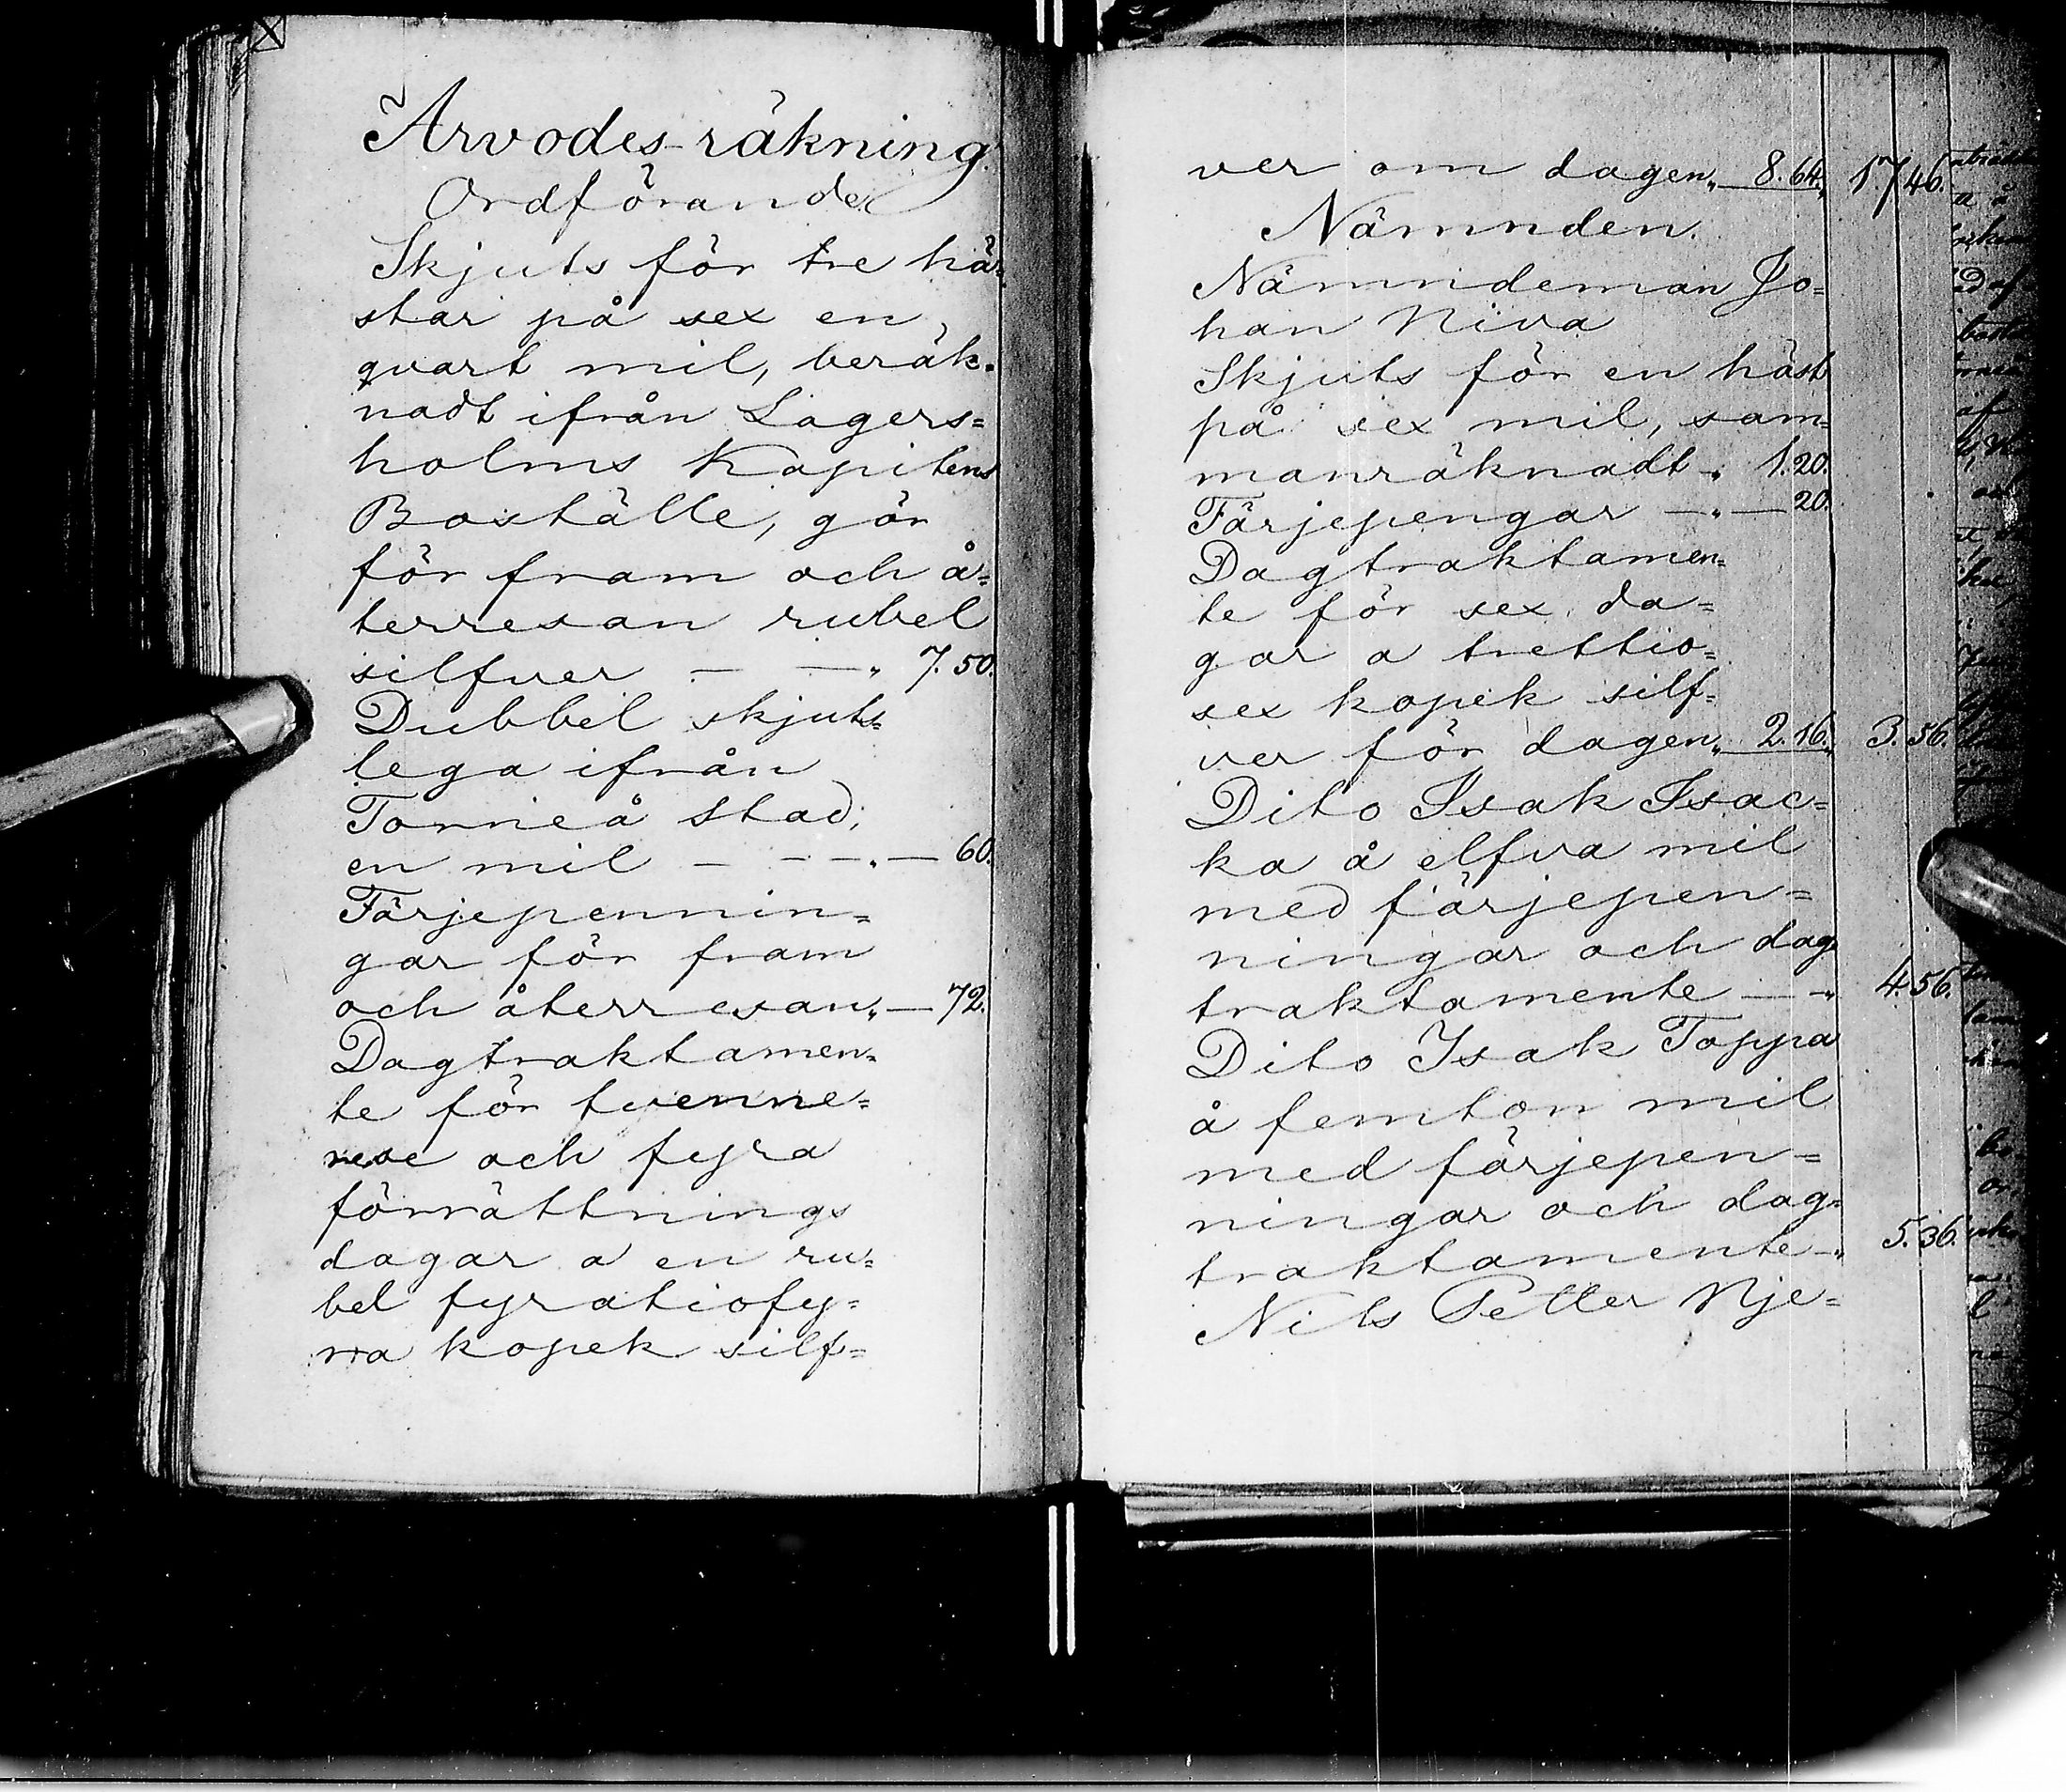 Arvodes-räkning.
Ordförande
Skjuts för tre hä-
star på sex en
qvart mil, beräk-
nadt ifrån Lagers=
holms Kapitens
Boställe, gör
för fram och å=
terresan rubel
silfver — — „ 7. 50.
Dubbel skjuts=
lega ifrån
Torneå stad,
en mil — — — „ — 60.
Färjepennin=
gar för fram
och återresan „ — 72.
Dagtraktamen=
te för tvenne=
rese och fyra
förrättnings
dagar a en ru=
bel fyratiofy=
ra kopek silf=
ver om dagen „ 8. 64. „ 17 46.
Nämnden.
Nämndeman Jo=
han Niva
Skjuts för en häst
på sex mil, sam=
manräknadt „ 1. 20.
Färjepengar — „ — 20.
Dagtraktamen=
te för sex da=
gar a trettio=
sex kopek silf=
ver för dagen „ 2. 16. „ 3. 56.
Dito Isak Isac=
ka å elfva mil
med färjepen=
ningar och dag
traktamente — „ 4. 56.
Dito Isak Toppa
å femton mil
med färjepen=
ningar och dag=
traktamente — „ 5. 36.
Nils Petter Nje=